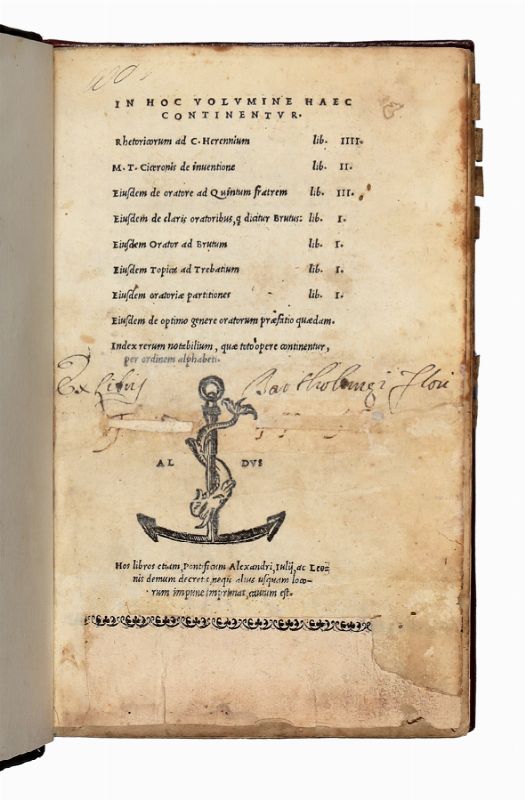 IN HOC VOLVMINE HAEC
CONTINENTVR.
Rhetoricorum ad C. Herennium lib. IIII.
M. T. Ciceronis de inuentione lib. II.
Eiusdem de oratore ad Quintum fratrem lib. III.
Eiusdem de claris oratoribus, q dicitur Brutus: lib. I.
Eiusdem Orator ad Brutum lib. I.
Eiusdem Topica ad Trebatium lib. I.
Eiusdem oratoriæ partitiones lib. I.
Eiusdem de optimo genere oratorum præfatio quædam.
Index rerum notabilium, quæ toto opere continentur,
per ordinem alphabeti.
Ex libris
AL DVS
Hos libros etiam, Pontificum Alexandri, Iulij, ac Leo-
nis demum decretis, nequis alius usquam loco-
rum impune imprimat, cautum est.